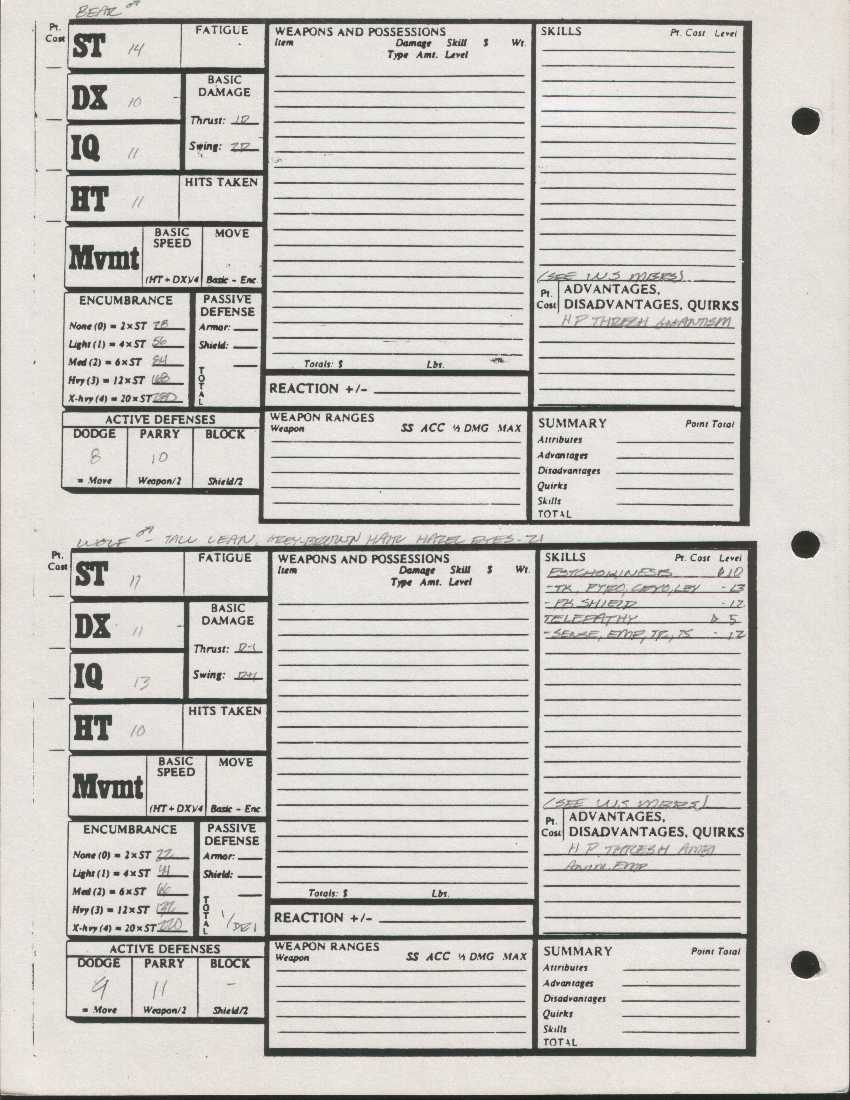 BEAR ♂
Pt. Cost
ST 14
FATIGUE
DX 10
BASIC DAMAGE
Thrust: 1D
Swing: 2D
IQ 11
HT 11
HITS TAKEN
Mvmt
BASIC SPEED
(HT + DX)/4
MOVE
Basic - Enc.
ENCUMBRANCE
None (0) = 2 x ST 28
Light (1) = 4 x ST 56
Med (2) = 6 x ST 84
Hvy (3) = 12 x ST 168
X-hvy (4) = 20 x ST 280
PASSIVE DEFENSE
Armor:
Shield:
TOTAL
ACTIVE DEFENSES
DODGE PARRY BLOCK
8 10
= Move Weapon/2 Shield/2
WEAPONS AND POSSESSIONS
Item Damage Skill $ Wt.
Type Amt. Level
Totals: $ Lbs.
REACTION +/-
WEAPON RANGES
Weapon SS ACC ½ DMG MAX
SKILLS Pt. Cost Level
(SEE W.S MBRS)
Pt. Cost ADVANTAGES,
DISADVANTAGES, QUIRKS
H P THRESH GIGANTISM
SUMMARY Point Total
Attributes
Advantages
Disadvantages
Quirks
Skills
TOTAL
WOLF ♂ - TALL LEAN, GREY-BROWN HAIR HAZEL EYES - 21
Pt. Cost
ST
FATIGUE
DX 11
BASIC DAMAGE
Thrust: D-1
Swing: D+1
IQ 13
HT 10
HITS TAKEN
Mvmt
BASIC SPEED
(HT + DX)/4
MOVE
Basic - Enc.
ENCUMBRANCE
None (0) = 2 x ST 22
Light (1) = 4 x ST 44
Med (2) = 6 x ST 66
Hvy (3) = 12 x ST 132
X-hvy (4) = 20 x ST 220
PASSIVE DEFENSE
Armor:
Shield:
TOTAL
ACTIVE DEFENSES
DODGE PARRY BLOCK
9 11 -
= Move Weapon/2 Shield/2
WEAPONS AND POSSESSIONS
Item Damage Skill $ Wt.
Type Amt. Level
Totals: $ Lbs.
REACTION +/-
WEAPON RANGES
Weapon SS ACC ½ DMG MAX
SKILLS Pt. Cost Level
PSYCHOKINESIS P 10
- TK, PYRO, CRYO, LEV - 13
- PK SHIELD - 12
TELEPATHY P 5
- SENSE, EMP, TR, TS - 12
(SEE W.S MBRS)
Pt. Cost ADVANTAGES,
DISADVANTAGES, QUIRKS
H P THRESH
ANIM. EMP
SUMMARY Point Total
Attributes
Advantages
Disadvantages
Quirks
Skills
TOTAL